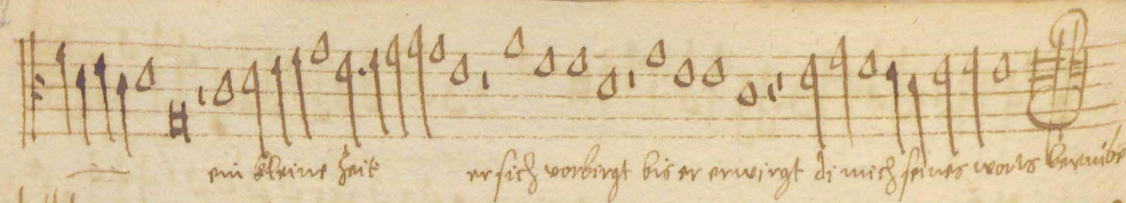 ein kleine Zeit er sich vorbirgt bis er erwirgt di mich seines worts beraube